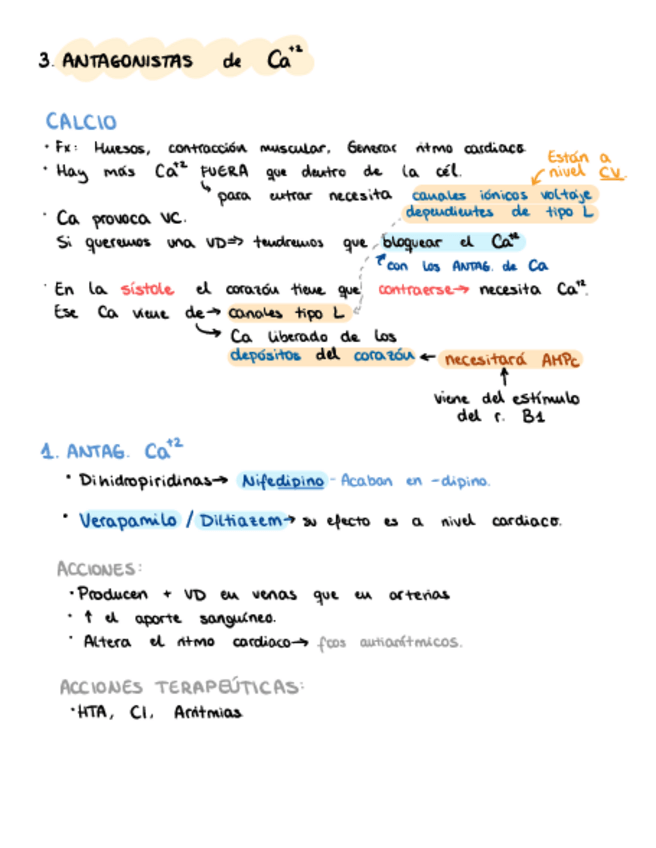 3. ANTAGONISTAS de Ca+2
CALCIO
· Fx: Huesos, contracción muscular, Generar ritmo cardiaco
· Hay más Ca+2 FUERA que dentro de la cél.
Están a nivel CV.
para entrar necesita canales iónicos voltaje
dependientes de tipo L
· Ca provoca VC.
Si queremos una VD => tendremos que bloquear el Ca+2
con los ANTAG. de Ca
· En la sístole el corazón tiene que contraerse → necesita Ca+2.
Ese Ca viene de → canales tipo L
Ca liberado de los
depósitos del corazón ← necesitará AMPc
viene del estímulo
del r. B1
1. ANTAG. Ca+2
· Dihidropiridinas → Nifedipino - Acaban en -dipino.
· Verapamilo / Diltiazem → su efecto es a nivel cardiaco.
ACCIONES:
· Producen + VD en venas que en arterias
· ↑ el aporte sanguíneo.
· Altera el ritmo cardiaco → fcos antiarítmicos.
ACCIONES TERAPEÚTICAS:
· HTA, CI, Arritmias